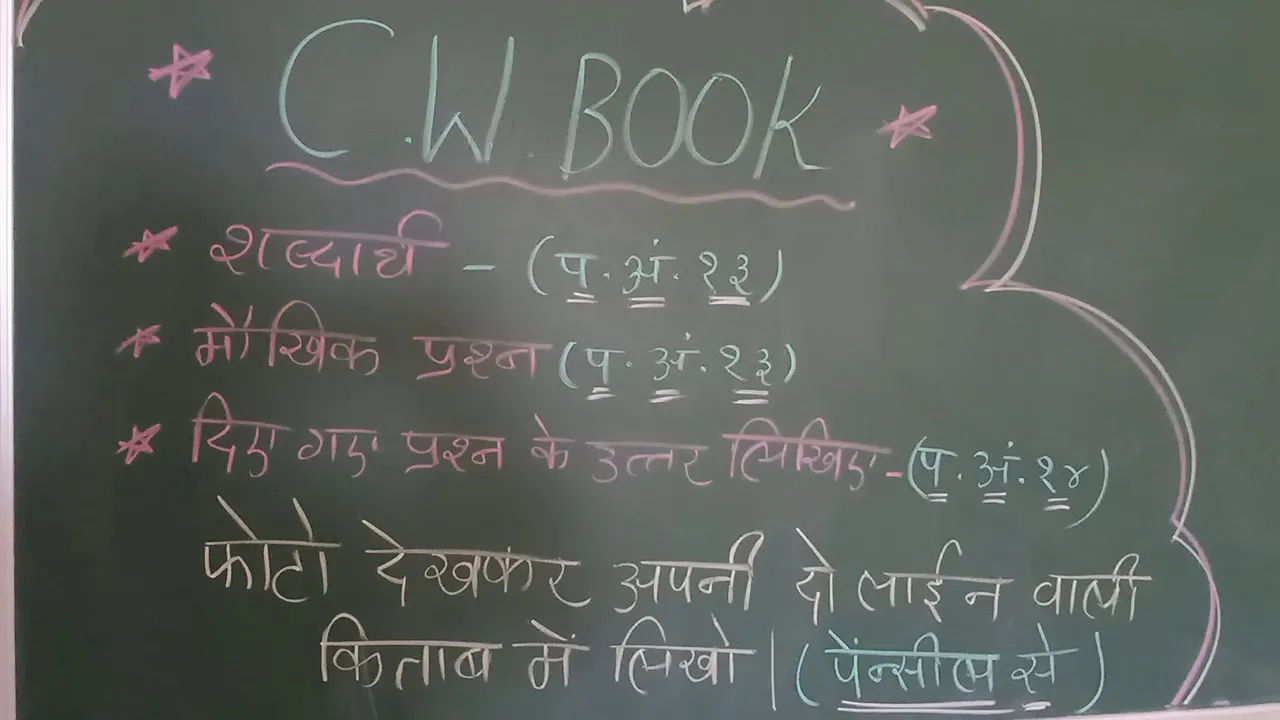 C.W. BOOK
शब्दार्थ - (प. अं. १३)
मौखिक प्रश्न (प. अं. १३)
दिए गए प्रश्न के उत्तर लिखिए - (प. अं. १४)
फोटो देखकर अपनी दो लाईन वाली
किताब में लिखो | (पेंन्सील से)